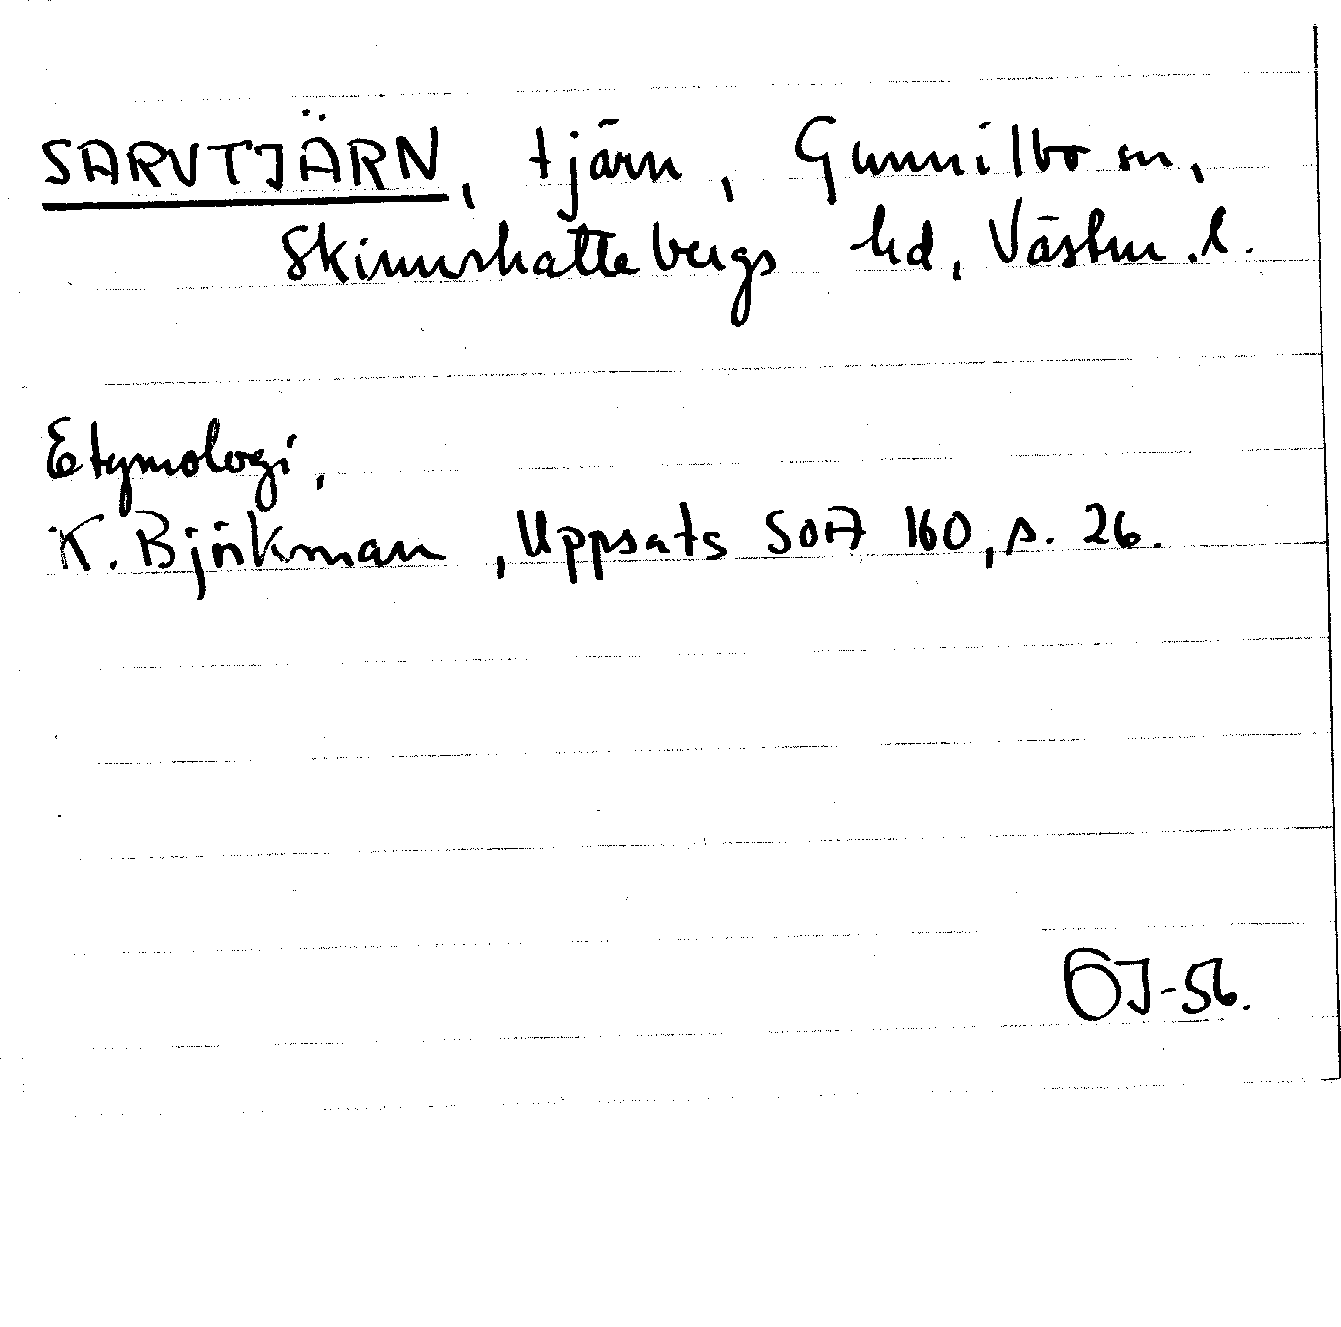 SARVTJÄRN, tjärn, Gunnilbo sn,
Skinnskattebergs hd, Västm. l.
Etymologi,
K. Björkman, Uppsats SOA 160, s. 26.
ÖJ-56.